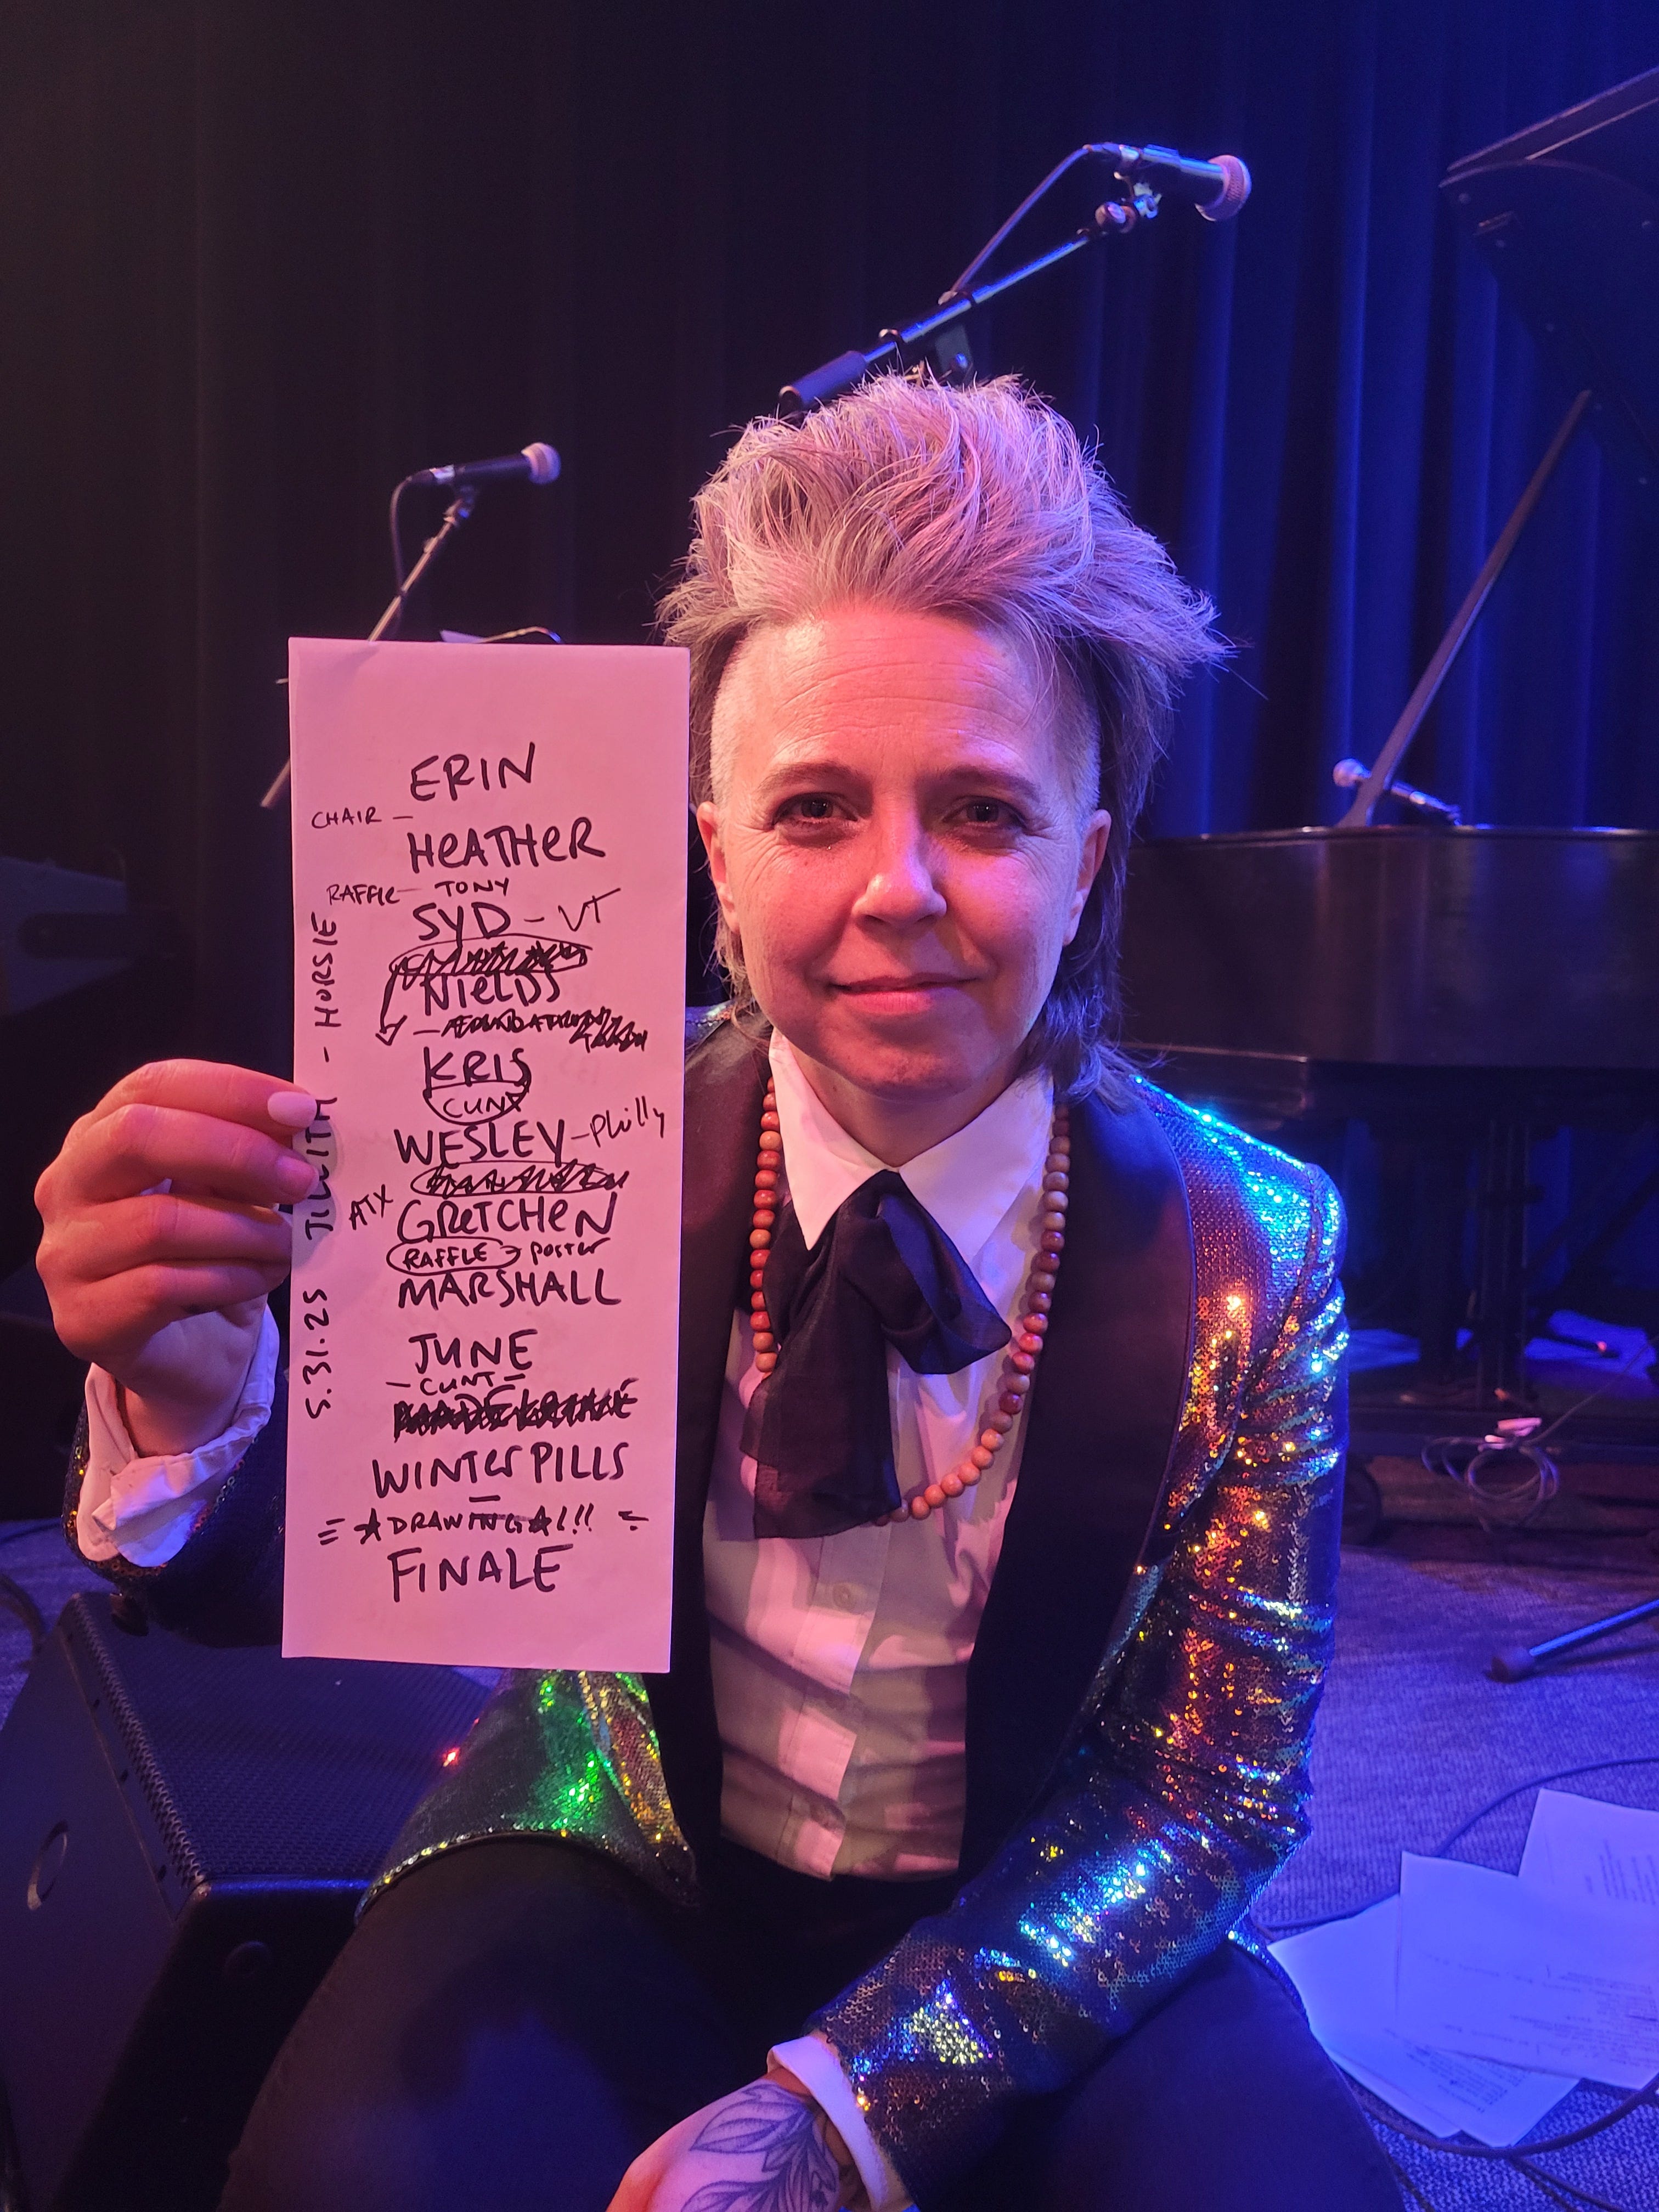 ERIN
CHAIR —
HEATHER
RAFFLE — TONY
SYD - VT
NIELDS
KRIS
CUNT
WESLEY - Philly
ATX GRETCHEN
RAFFLE → poster
MARSHALL
JUNE
- CUNT -
WINTERPILLS
A DRAWING A!!!
FINALE
5.31.25 JILLITH - HORSIE